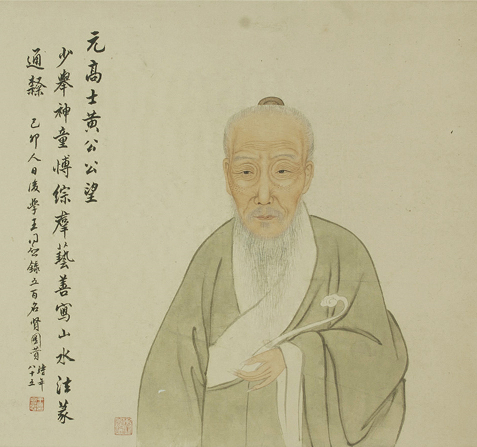 元高士黃公公望
少舉神童愽綜羣藝善寫山水法篆
通隸
己卯人日後學王同愈錄五百名賢圖贊
時年
八十五